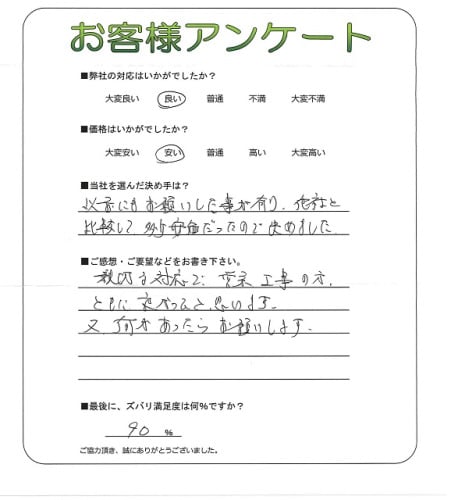 お客様アンケート
■弊社の対応はいかがでしたか？
大変良い 良い 普通 不満 大変不満
■価格はいかがでしたか？
大変安い 安い 普通 高い 大変高い
■当社を選んだ決め手は？
以前にもお願いした事が有り、他社と
比較して 多少安価だったので決めました
■ご感想・ご要望などをお書き下さい。
親切な対応で 営業 工事の方、
ともに 良かったと思います。
又 何かあったら お願いします。
■最後に、ズバリ満足度は何％ですか？
90 ％
ご協力頂き、誠にありがとうございました。